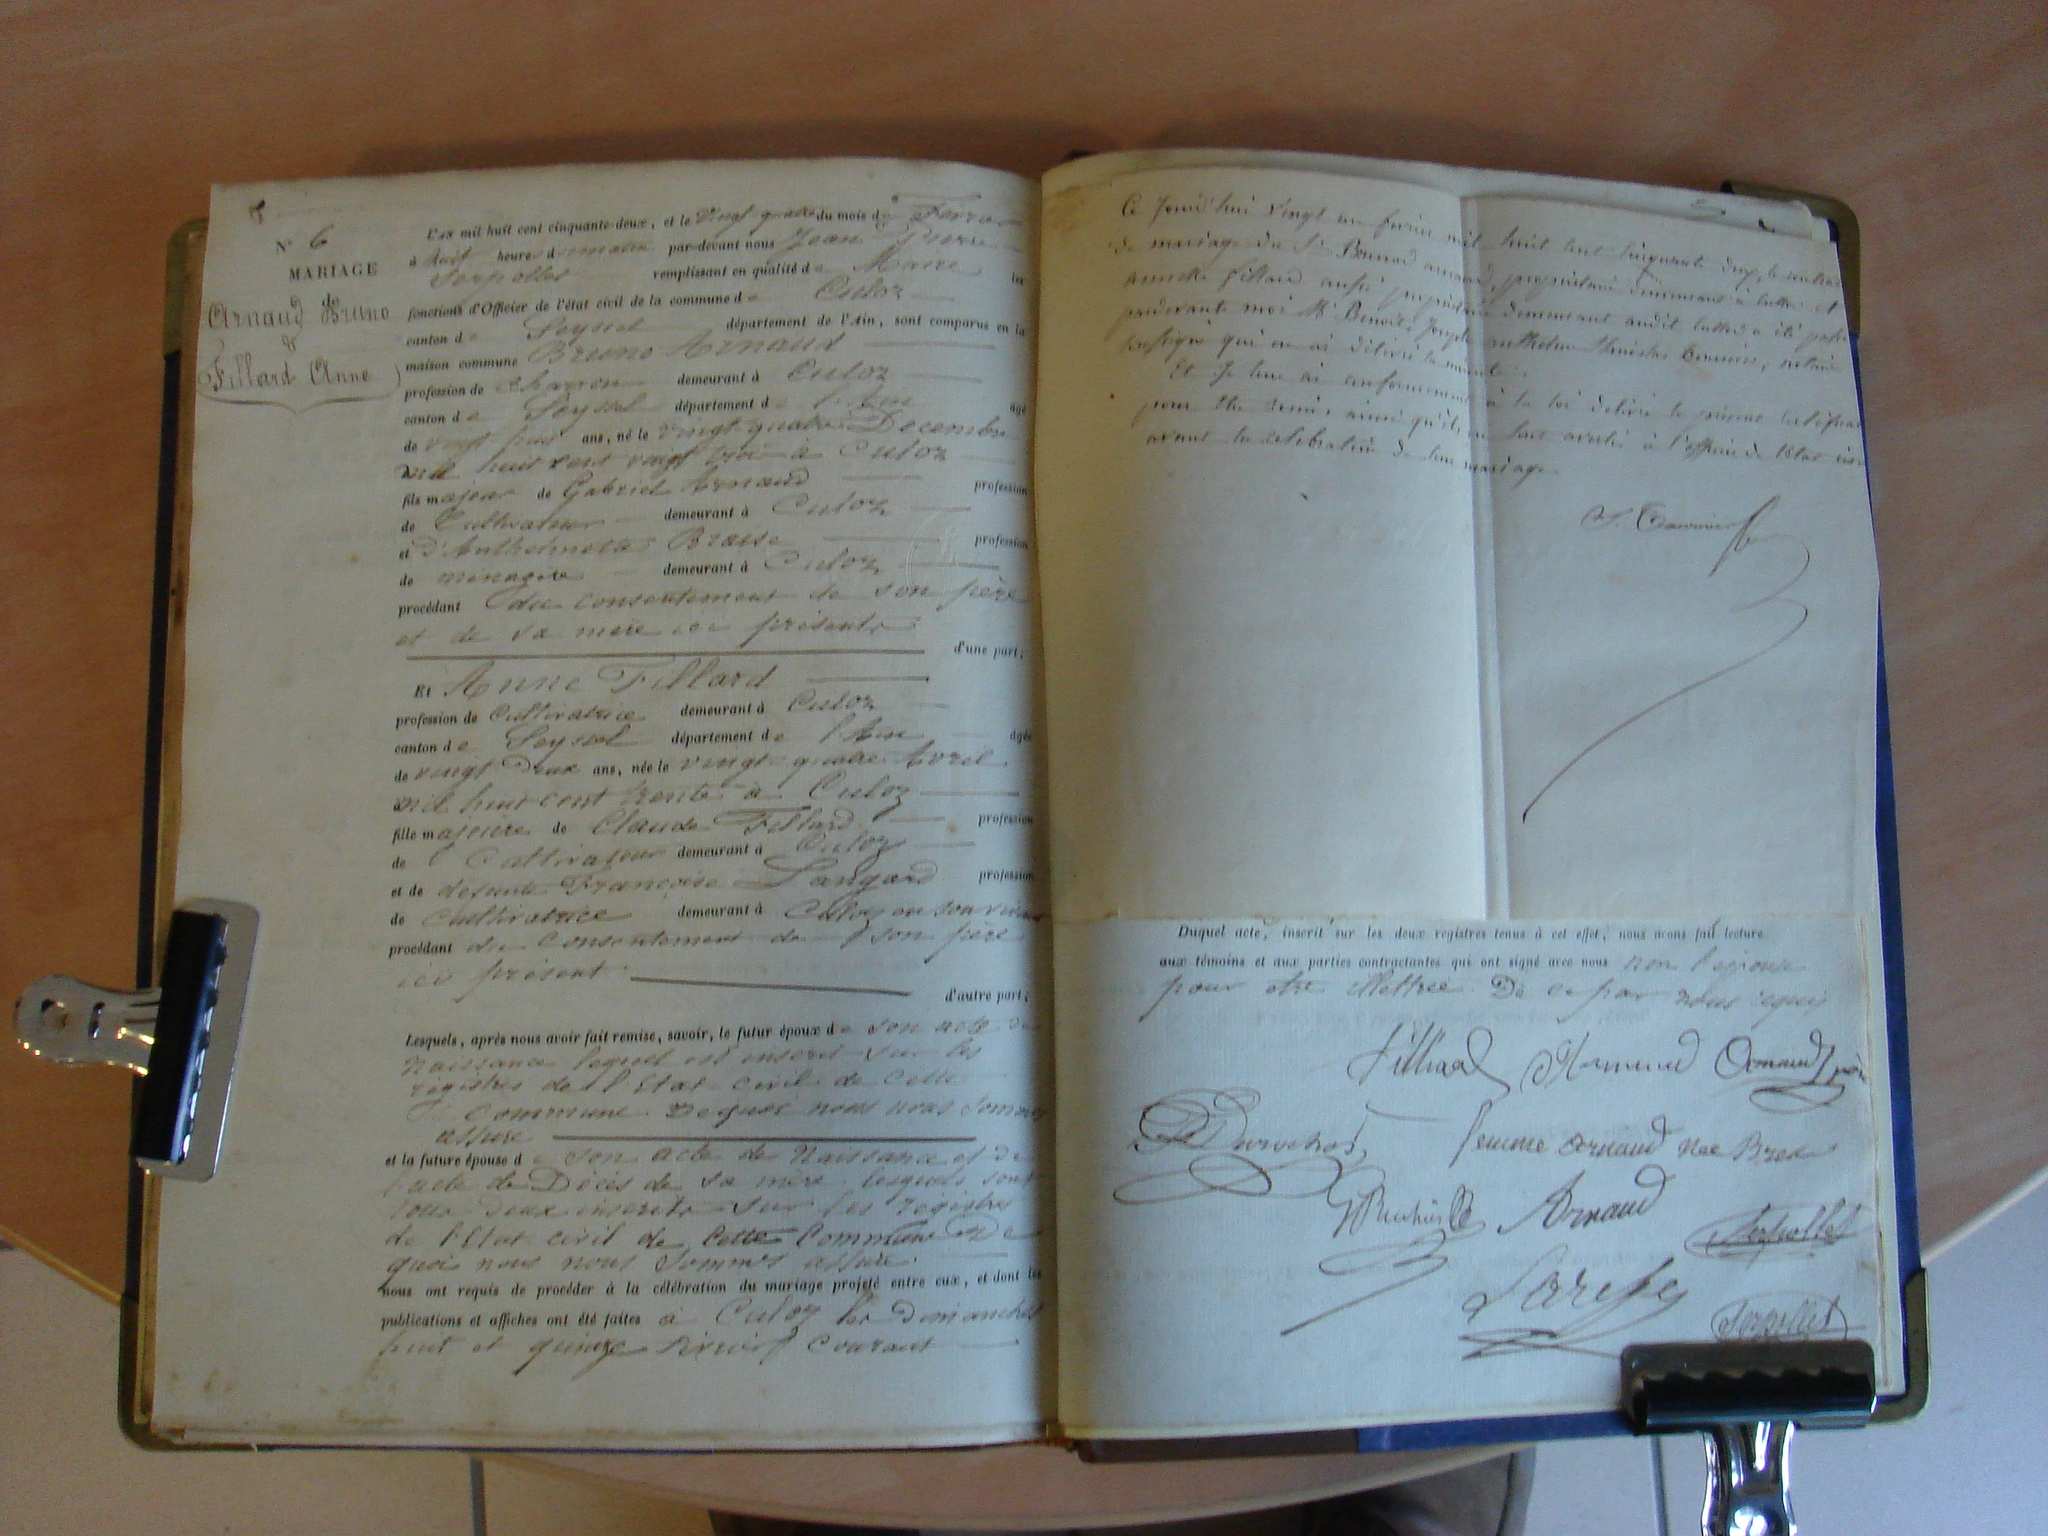 N° 6
MARIAGE
de
Arnaud Bruno
&
Fillard Anne
L'an mil huit cent cinquante-deux, et le vingt quatre du mois de
à huit heure d matin par-devant nous Jean Pierre
Serpollet remplissant en qualité de Maire les
fonctions d'Officier de l'état civil de la commune de Culoz
canton de Seyssel département de l'Ain, sont comparus en la
maison commune Bruno Arnaud
profession de charron demeurant à Culoz
canton de Seyssel département de l'Ain âgé
de vingt huit ans, né le vingt quatre Décembre
mil huit cent vingt trois à Culoz
fils majeur de Gabriel Arnaud profession
de Cultivateur demeurant à Culoz
et d'Anthelmette profession
de ménagère demeurant à Culoz
procédant du consentement de son père
et de sa mère ici présents
d'une part;
Et Anne Fillard
profession de Cultivatrice demeurant à Culoz
canton de Seyssel département de l'Ain âgée
de vingt Deux ans, née le vingt quatre Avril
mil huit cent trente à Culoz
fille majeure de Claude Fillard profession
de Cultivateur demeurant à Culoz
et de défunte Françoise Sangard profession
de Cultivatrice demeurant à Culoz en son vivant
procédant du consentement de son père
ici présent
d'autre part;
Lesquels, après nous avoir fait remise, savoir, le futur époux de son acte de
Naissance lequel est inscrit sur les
régistres de l'Etat civil de cette
Commune. De quoi nous nous sommes
assuré
et la future épouse de son acte de Naissance et de
l'acte de Décès de sa mère lesquels sont
tous deux inscrits sur les régistres
de l'Etat civil de cette Commune De
quoi nous nous sommes assuré.
nous ont requis de procéder à la célébration du mariage projeté entre eux, et dont les
publications et affiches ont été faites à Culoz les Dimanches
huit et quinze courant
Ce Jourd'hui vingt un février mil huit cent cinquante deux, le contrat
de mariage du Sr Bruno arnaud, propriétaire demeurant à Culloz et
fillard aussi propriétaire demeurant audit Culloz a été passé
pardevant moi Me Benoit Joseph anthelme notaire
soussigné qui en ai délivré la minute.
Et Je leur ai conformément à la loi délivré le présent certificat
pour être remis ainsi qu'ils en sont avertis à l'officier de l'état civil
avant la célébration de leur mariage
Duquel acte, inscrit sur les deux registres tenus à cet effet, nous avons fait lecture
aux témoins et aux parties contractantes qui ont signé avec nous non l'épouse
pour être illettrée. De ce par nous requis
Arnaud Arnaud père
femme arnaud née
Arnaud Serpollet
Serpollet